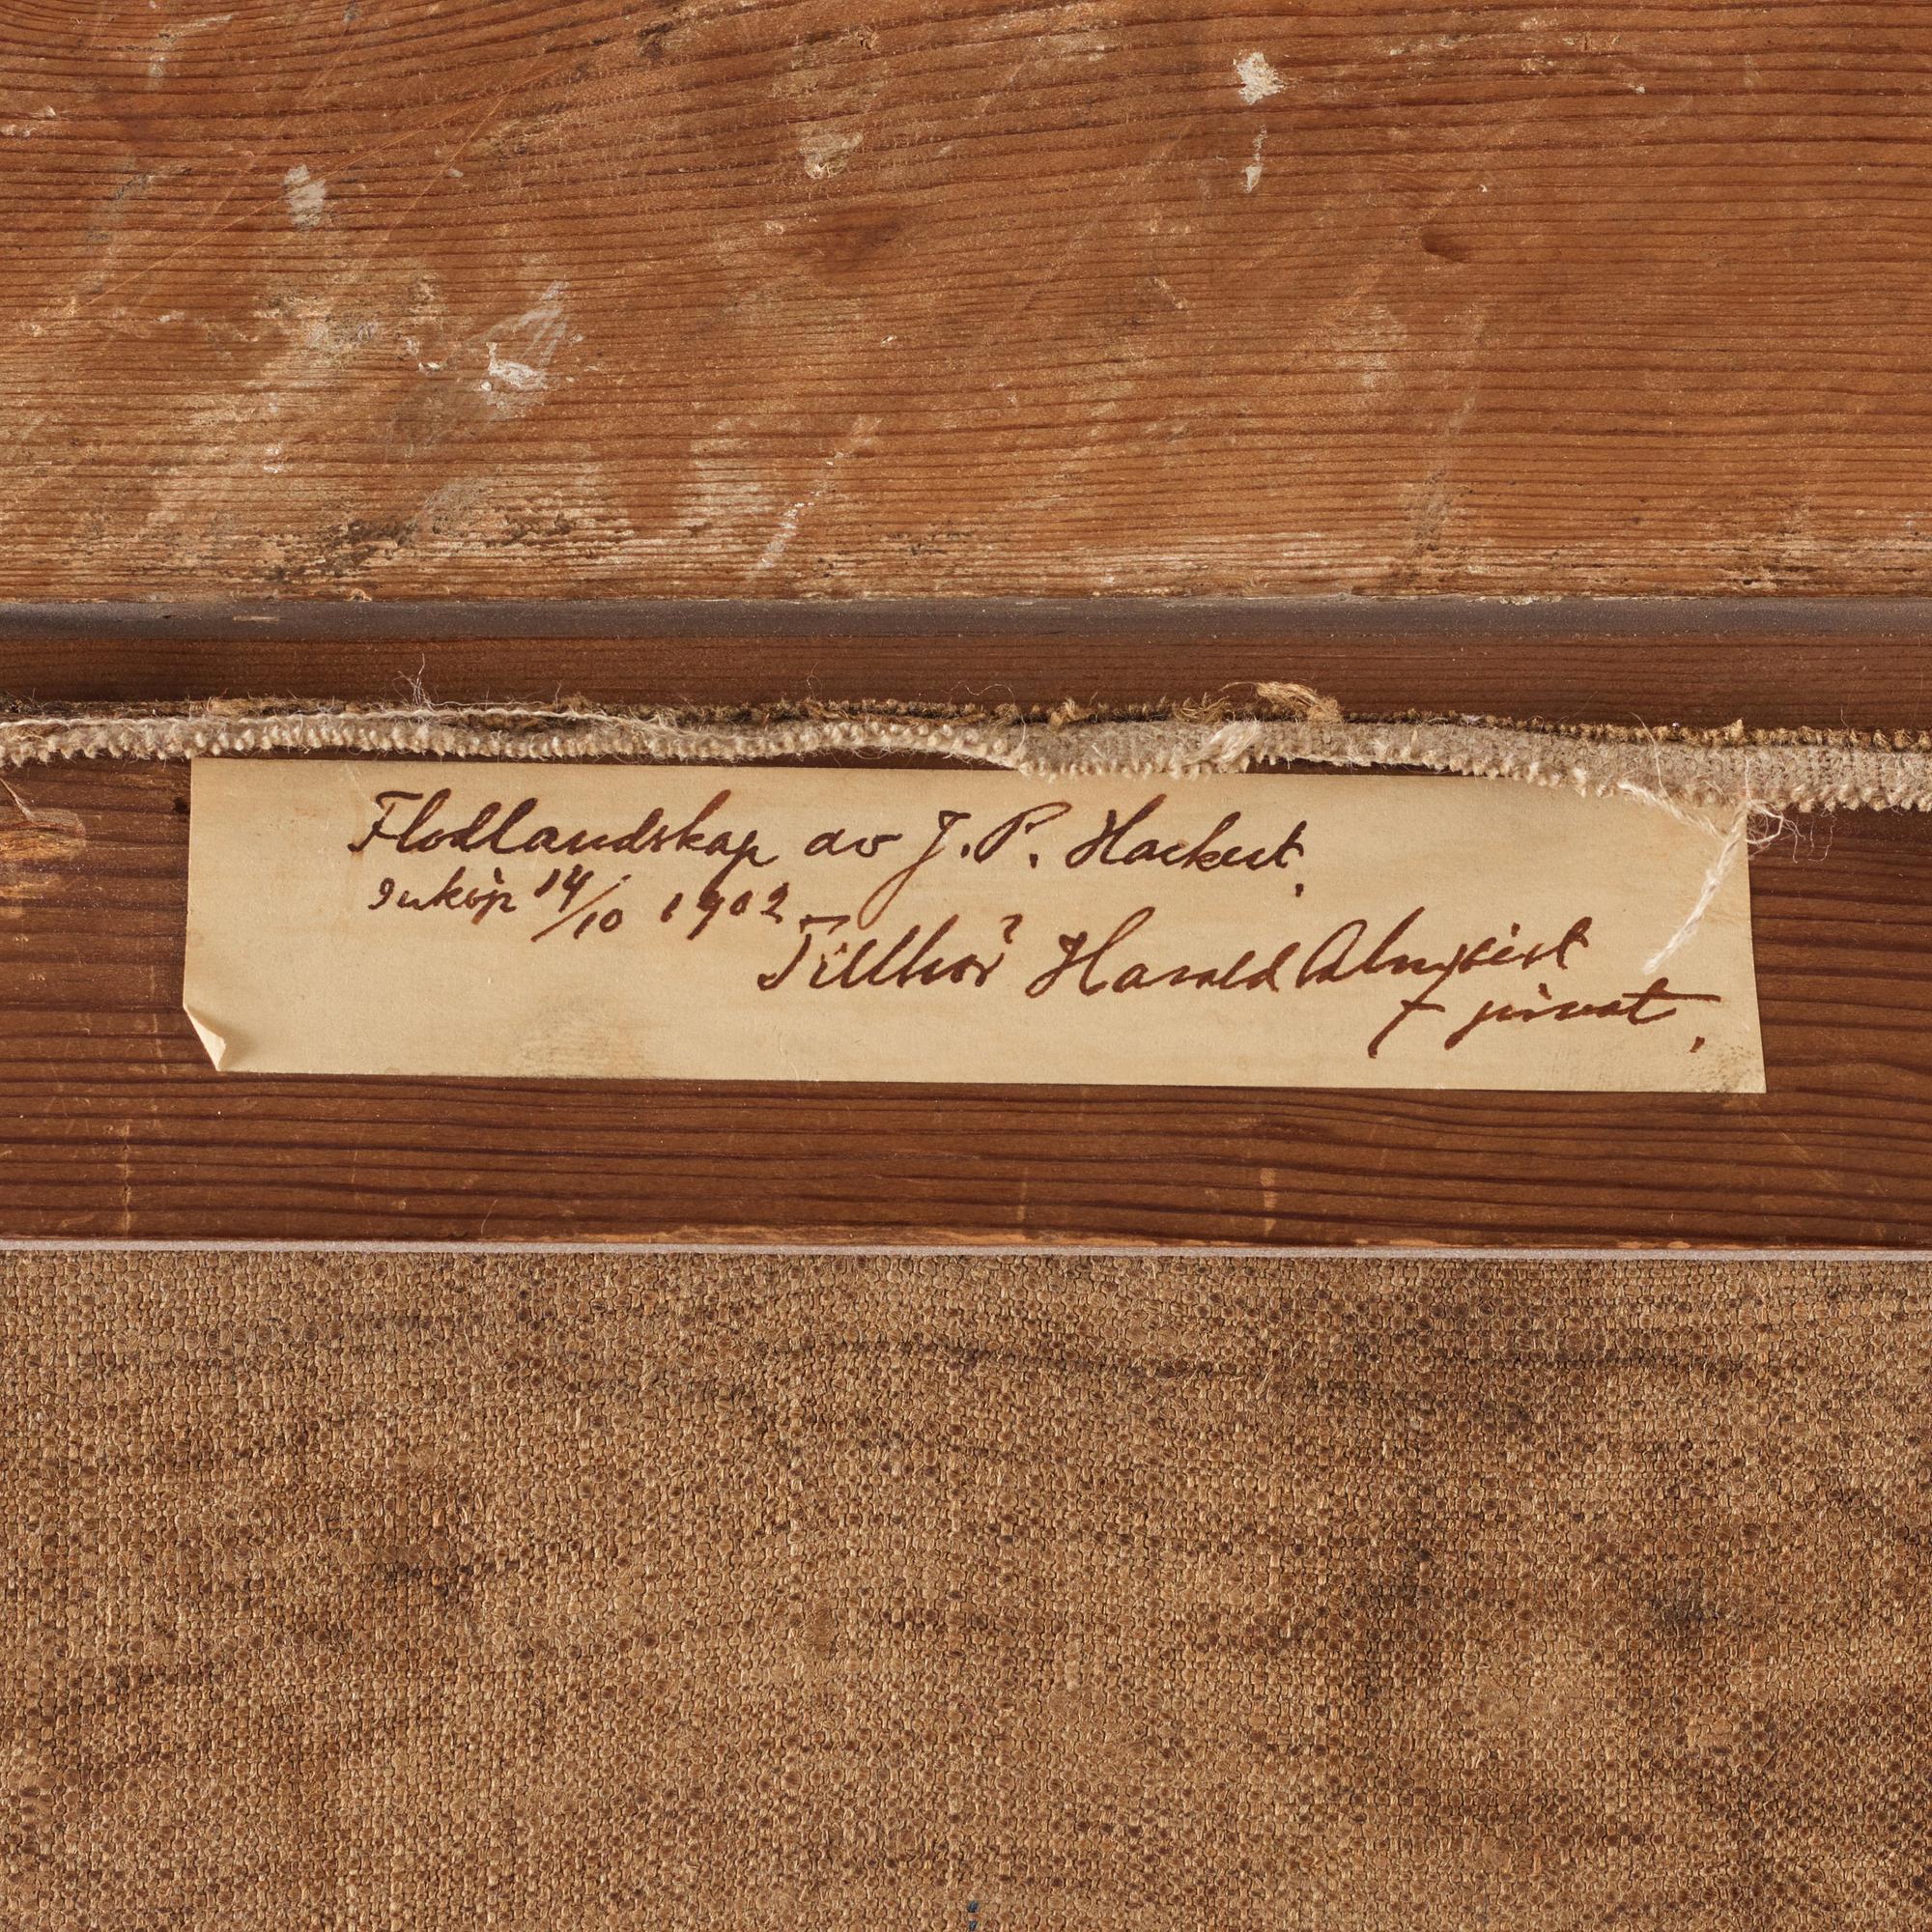 Flodlandskap av J. P. Hackert.
Inköp 14/10 1902
Tillhör Harald Almqvist
privat.